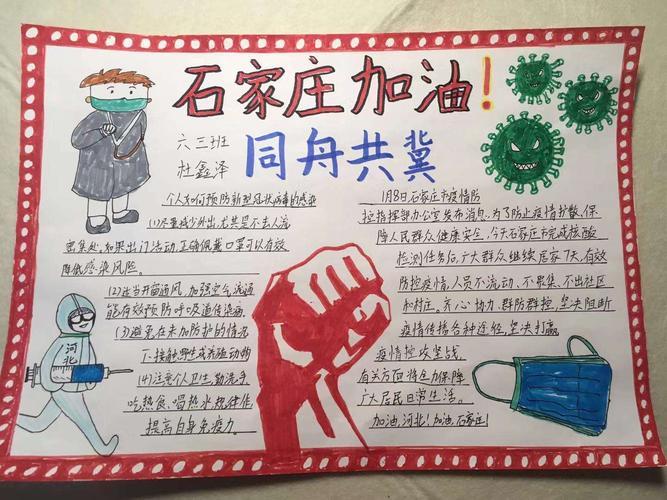 石家庄加油!
六三班
杜鑫泽
同舟共冀
个人如何预防新型冠状病毒的感染
(1)尽量减少外出,尤其是不去人流
密集处,如果出门活动,正确佩戴口罩可以有效
降低感染风险。
(2)适当开窗通风,加强空气流通
能有效预防呼吸道传染病
(3)避免在未加防护的情况
下接触野生或养殖动物
(4)注意个人卫生,勤洗手
吃热食、喝热水,规律作
提高自身免疫力。
河北
1月8日石家庄市疫情防
控指挥部办公室发布消息,为了防止疫情扩散,保
障人民群众健康安全,今天石家庄市完成核酸
检测任务后,广大群众继续居家7天,有效
防控疫情,人员不流动、不聚集、不出社区
和村庄。齐心协力、群防群控,坚决阻断
疫情传播各种途径,坚决打赢
疫情防控攻坚战。
有关方面将全力保障
广大居民日常生活。
加油,河北!加油,石家庄!